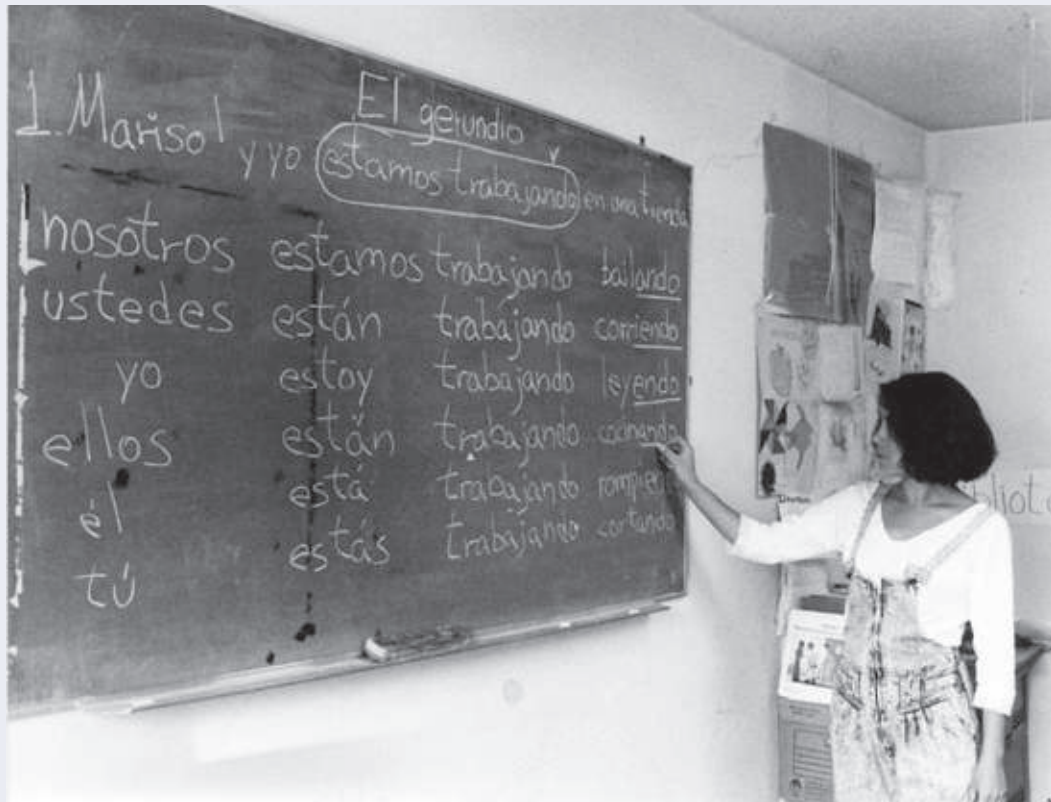 El gerundio
1. Marisol y yo estamos trabajando en una tienda
nosotros estamos trabajando bailando
ustedes están trabajando corriendo
yo estoy trabajando leyendo
ellos están trabajando cocinando
él está trabajando
tú estás trabajando cortando